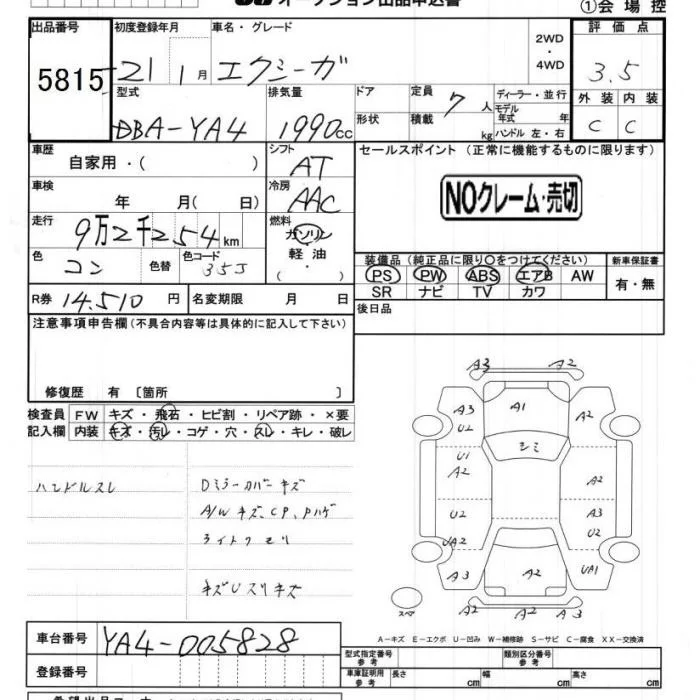 オークション出品申込書
①会場控
出品番号 初度登録年月 車名・グレード 2WD・4WD 評価点
5815 21 1月 エクシーガ 3.5
型式 排気量 ドア 定員 7人 ディーラー・並行 外装 内装
DBA-YA4 1990cc 形状 積載 kg モデル年式 年 ハンドル 左・右 C C
車歴 シフト セールスポイント (正常に機能するものに限ります)
自家用・( ) AT
車検 冷房 NOクレーム・売切
年 月( 日) AAC
走行 燃料
9万2千254km ガソリン
色 色替 色コード 軽油 装備品 (純正品に限り○をつけてください) 新車保証書
コン 35J ・( ) PS PW ABS エアB AW 有・無
SR ナビ TV カワ
R券 14.510円 名変期限 月 日 後日品
注意事項申告欄(不具合内容等は具体的に記入して下さい)
修復歴 有 〔箇所 〕
検査員 FW キズ・飛石・ヒビ割・リペア跡・×要
記入欄 内装 キズ・汚レ・コゲ・穴・スレ・キレ・破レ
ハンドルスレ Dミラーカバーキズ
A/Wキズ、CP、Pハゲ
ライトクモリ
キズUスリキズ
A3 A2
A3 A1 A2
U2
シミ
U1
A2 A2
U2 A3
U2
UA2
A3 A2 UA1
スペア A2 A2 A3
A-キズ E-エクボ U-凹み W-補修跡 S-サビ C-腐食 XX-交換済
車台番号 YA4-005828
型式指定番号 参考 類別区分番号 参考
登録番号 車庫証明用 参考 長さ cm 幅 cm 高さ cm